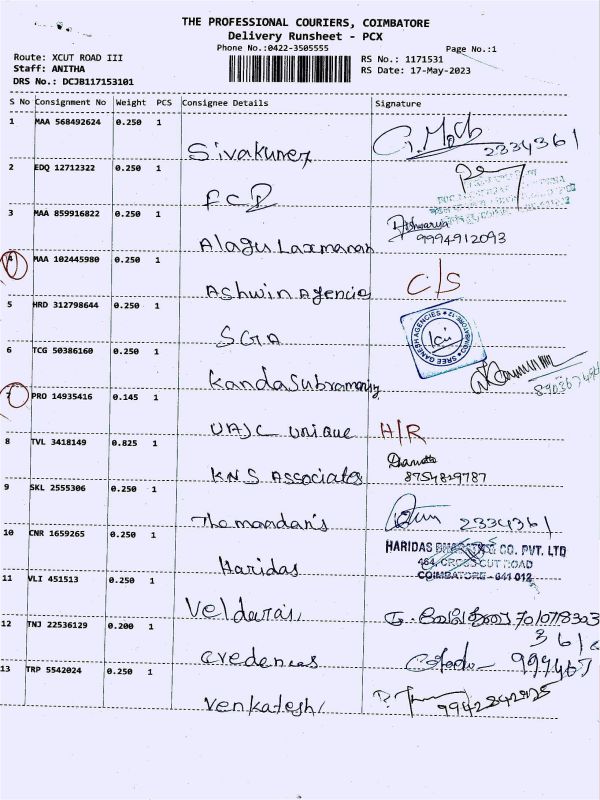 THE PROFESSIONAL COURIERS, COIMBATORE
Delivery Runsheet - PCX
Phone No.:0422-3505555
Page No.:1
Route: XCUT ROAD III
Staff: ANITHA
DRS No.: DCJB117153101
RS No.: 1171531
RS Date: 17-May-2023
S No Consignment No Weight PCS Consignee Details Signature
1 MAA 568492624 0.250 1
Sivakumer 2334361
2 EDQ 12712322 0.250 1
FCI
3 MAA 859916822 0.250 1
Aishwarya
Alagu Laxmanan 9994912093
4 MAA 102445980 0.250 1
Ashwin Agencies C/S
5 HRD 312798644 0.250 1
SGA
SREE GANESH AGENCIES * COIMBATORE-12 *
6 TCG 50386160 0.250 1
Kandasubramaniy
7 PRO 14935416 0.145 1
UAJC unique H/R
8 TVL 3418149 0.825 1
KNS Associates 8754829787
9 SKL 2555306 0.250 1
Themandan's 2334361
10 CNR 1659265 0.250 1
HARIDAS CO. PVT. LTD
464, CROSS CUT ROAD
Haridas
COIMBATORE - 641 012
11 VLI 451513 0.250 1
Veldurai
12 TNJ 22536129 0.200 1
Credences
13 TRP 5542024 0.250 1
Venkatesh